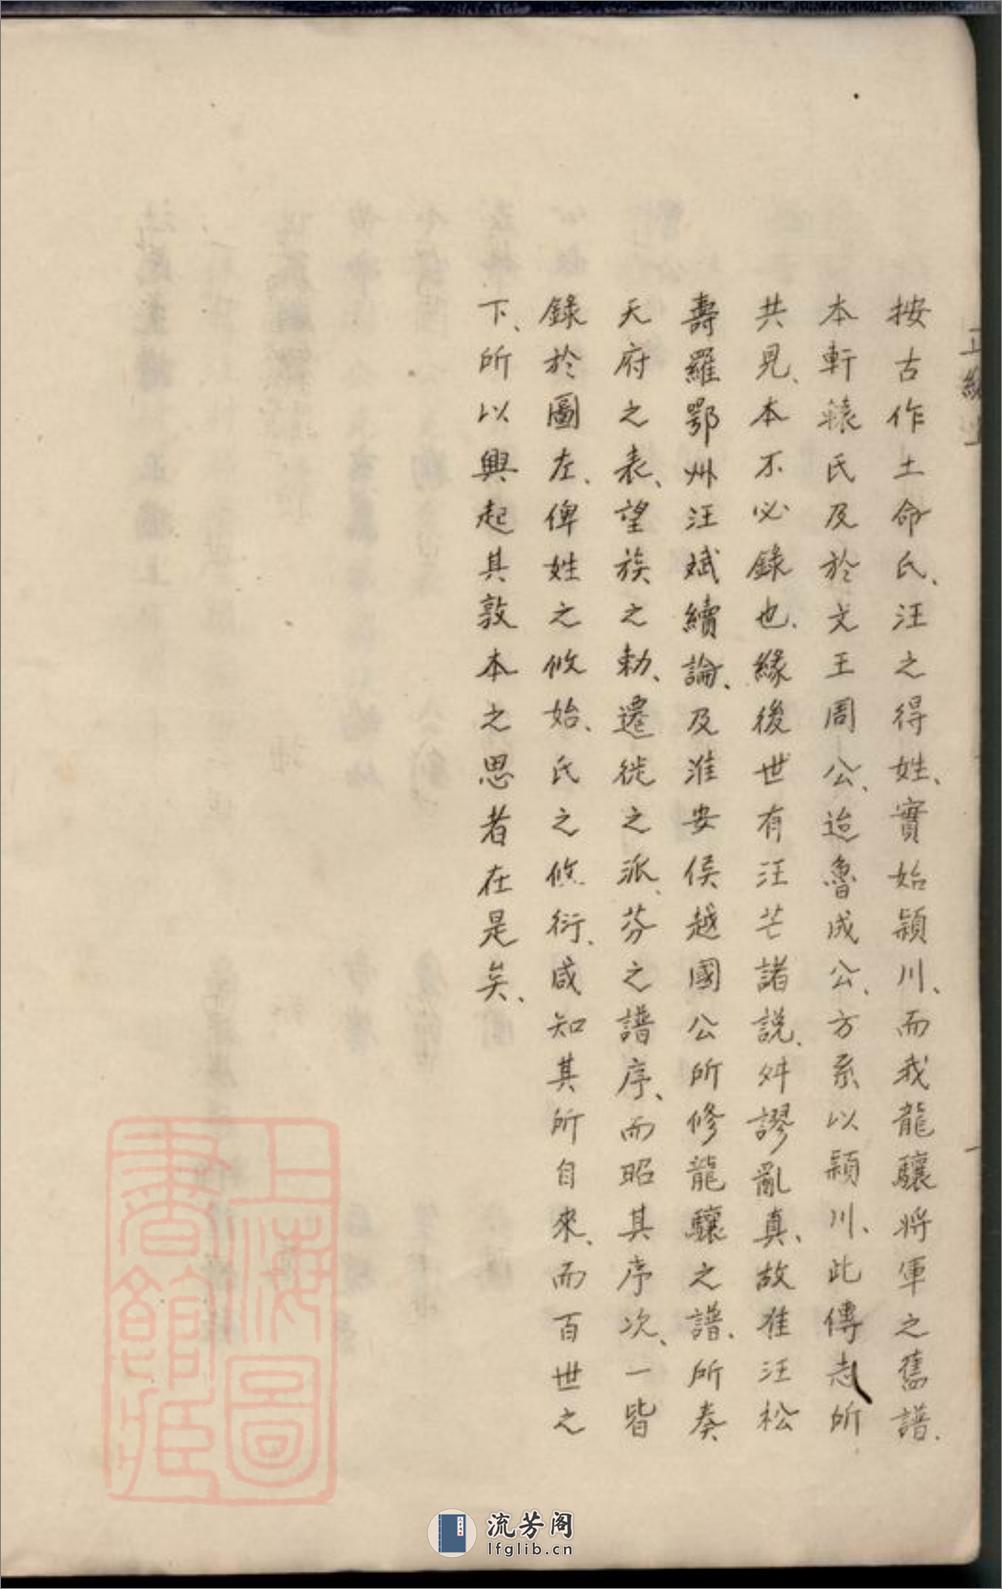 按古作土命氏、汪之得姓、實始潁川、而我龍驤將軍之舊譜、
本軒轅氏及於文王周公、迨魯成公、方系以潁川、此傳志所
共見、本不必録也、緣後世有汪芒諸説、舛謬亂真、故准汪松
壽羅鄂州汪斌續論、及淮安侯越國公所修龍驤之譜、所奏
天府之表、望族之勅、遷徙之派、芬之譜序、而昭其序次、一皆
録於圖左、俾姓之攸始、氏之攸衍、咸知其所自來、而百世之
下、所以興起其敦本之思者在是矣、
上海圖
書館藏
流芳阁
lfglib.cn